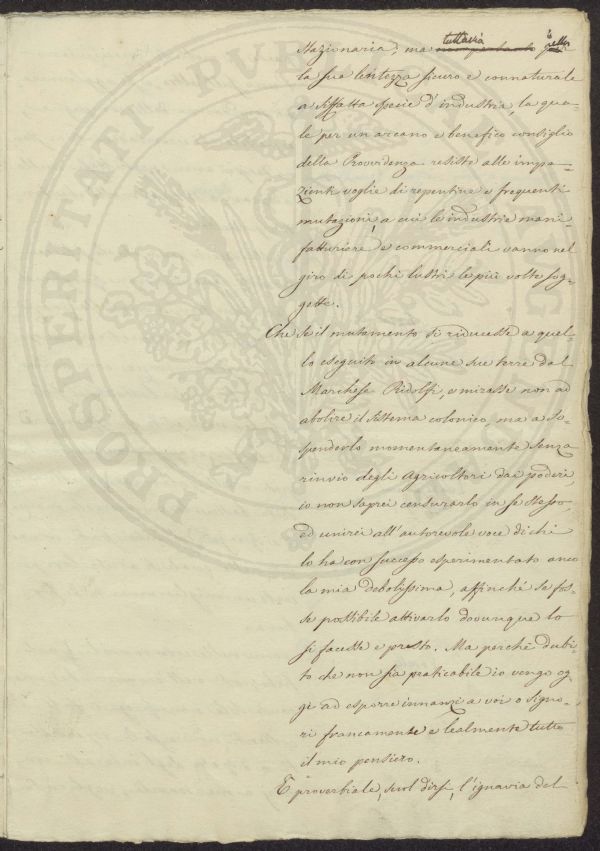 tuttavia è nella
stazionaria; ma non pertanto
la sua lentezza sicuro e connaturale
a siffatta specie d'industria, la qua-
le per un arcano e benefico consiglio
della Provvidenza resiste alle impa-
zienti voglie di repentine e frequenti
mutazioni, a cui le industrie mani-
fatturiere e commerciali vanno nel
giro di pochi lustri le più volte sog-
gette.
Che se il mutamento si riducesse a quel-
lo eseguito in alcune sue terre dal
Marchese Ridolfi, e mirasse non ad
abolire il sistema colonico, ma a so-
spenderlo momentaneamente senza
rinvio degli Agricoltori dai poderi
io non saprei censurarlo in se stesso,
ed unirei all'autorevole voce di chi
lo ha con successo esperimentato anco
la mia debolissima, affinché se fos-
se possibile attivarlo dovunque lo
si facesse e presto. Ma perché dubi-
to che non sia praticabile io vengo og-
gi ad esporre innanzi a voi o Signo-
ri francamente e lealmente tutto
il mio pensiero.
È proverbiale, suol dirsi, l'ignavia del
PROSPERITATI PUBLICAE